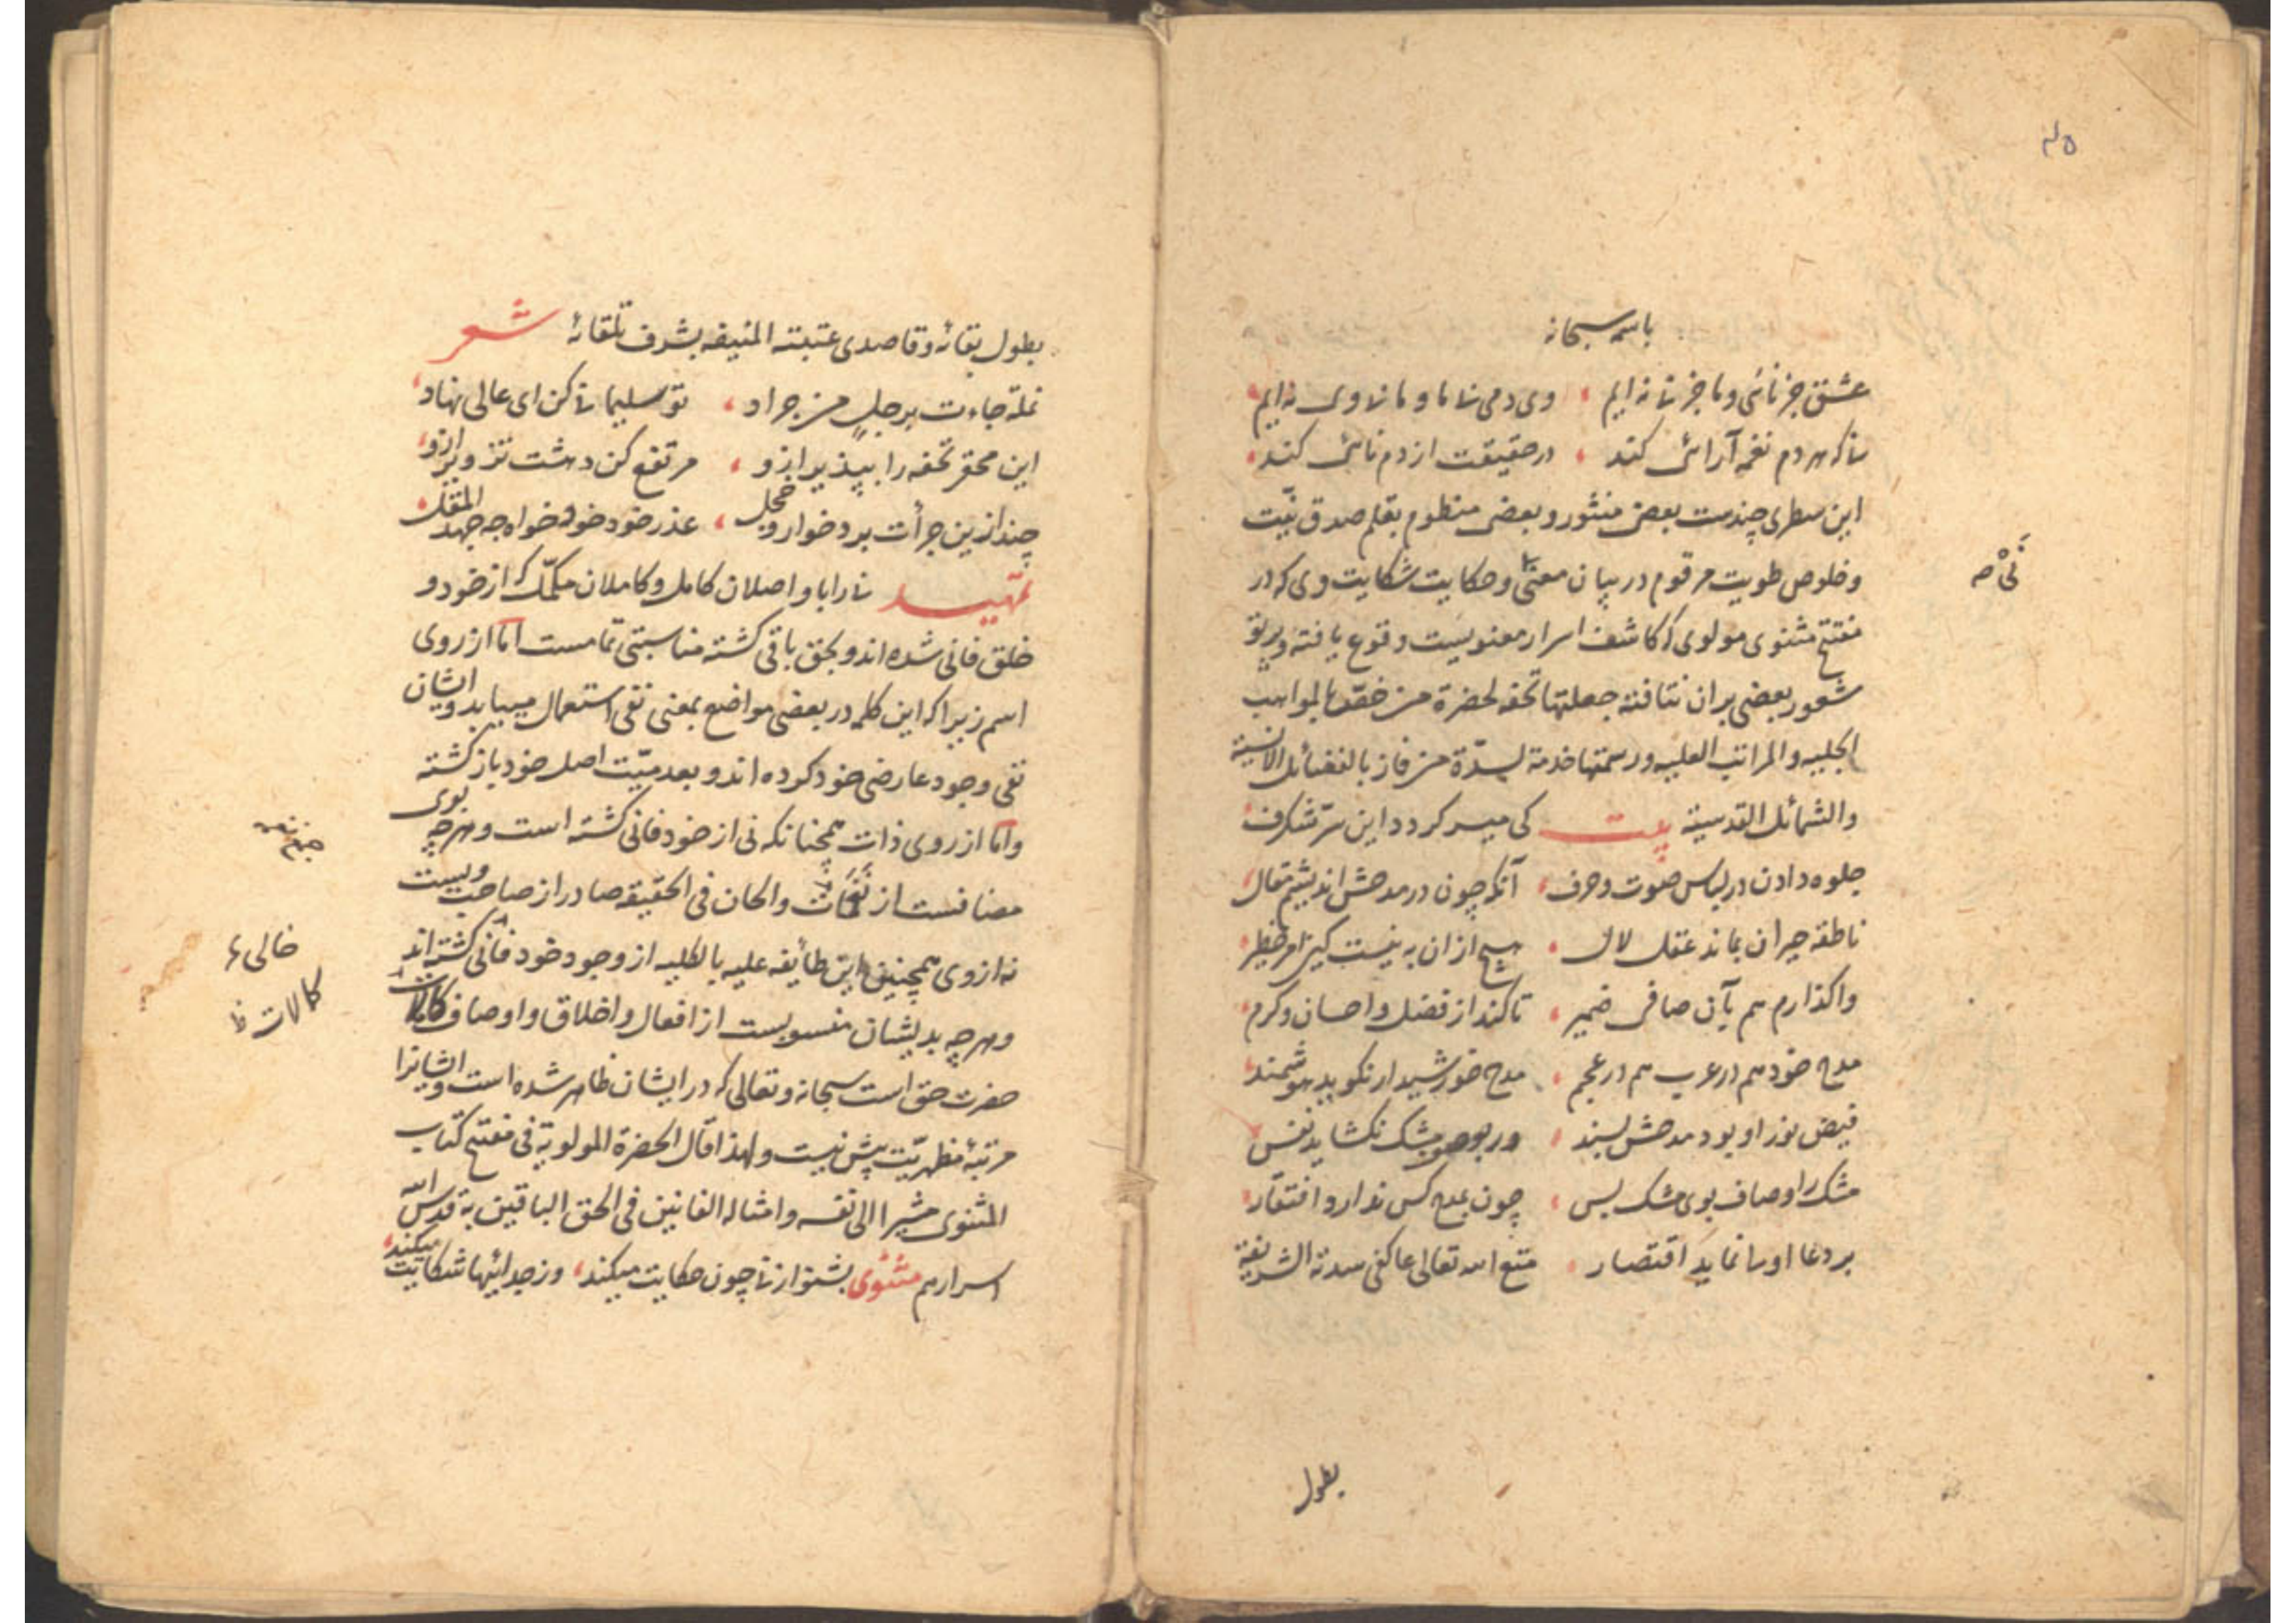 باسمه سبحانه
عشق جز نائی و ما جز نی نه ایم ، وی دمی بی ما و ما بی وی نه ایم
نی که هر دم نغمه آرائی کند ، در حقیقت از دم نائی کند
این سطری چندست بعضی منثور و بعضی منظوم بقلم صدق نیّت
و خلوص طویت مرقوم در بیان معنی و حکایت شکایت وی که در
نَیْ صح
مفتتح مثنوی مولوی که کاشف اسرار معنویست وقوع یافته و پرتو
شعور بعضی بران نتافته جعلتها تحفه لحضرة من خصّه بالمواهب
الجلیه والمراتب العلیه و رسمتها خدمة لسدّة من فاز بالفضائل الانسیة
والشمائل القدسیة بیت کی میسر کردد این سرّ شکرف
جلوه دادن در لباس صوت و حرف ، آنکه چون در مدحش اندیشم مقال
ناطقه حیران بماند عقل لال ، هیچ ازان به نیست کین امر خطیر
واکذارم هم بآن صافی ضمیر ، تا کند از فضل و احسان و کرم
مدح خود هم در عرب هم در عجم ، مدح خورشید ار نکوید هوشمند
فیض نور او بود مدحش پسند ، ور بوصف مشک نکشاید نفس
مشک را وصاف بوی مشک بس ، چون بمدح کس ندارد افتقار
بر دعا اولی نماید اقتصار ، متع الله تعالی عاکفی سدته الشریفة
بطول
بطول بقائه و قاصدی عتبته المنیفه بشرف تلقائه شعر
نملة جاءت برجلٍ من جراد ، تو سلیمانی کن ای عالی نهاد
این محقر تحفه را بپذیر ازو ، مرتفع کن دهشت تزویر ازو
چند ازین جرأت برد خوار و خجل ، عذر خود خود خواه جه جهد المقل
تمهید نی را با واصلان کامل و کاملان مکمّل که از خود و
خلق فانی شده اند و بحق باقی کشته مناسبتی تمامست امّا از روی
اسم زیرا که این کلمه در بعضی مواضع بمعنی نفی استعمال مییابد و ایشان
نفی وجود عارضی خود کرده اند و بعدمیّت اصل خود باز کشته
وامّا از روی ذات همچنانکه نی از خود فانی کشته است و هرچه بوی
مضافست از نغمات والحان فی الحقیقه صادر از صاحب ویست
نه از وی همچنین این طائفه علیه بالکلیه از وجود خود فانی کشته اند
خالی
و هرچه بدیشان منسوبست از افعال و اخلاق و اوصاف کمالات
کمالات ظ
حضرت حق است سبحانه و تعالی که در ایشان ظاهر شده است و ایشانرا
مرتبهٔ مظهریّت بیش نیست ولهذا قال الحضرة المولویة فی مفتتح کتاب
المثنوی مشیرا الی نفسه وامثاله الفانین فی الحق الباقین به قدس الله
اسرارهم مثنوی بشنو از نی چون حکایت میکند ، وز جدائیها شکایت میکند